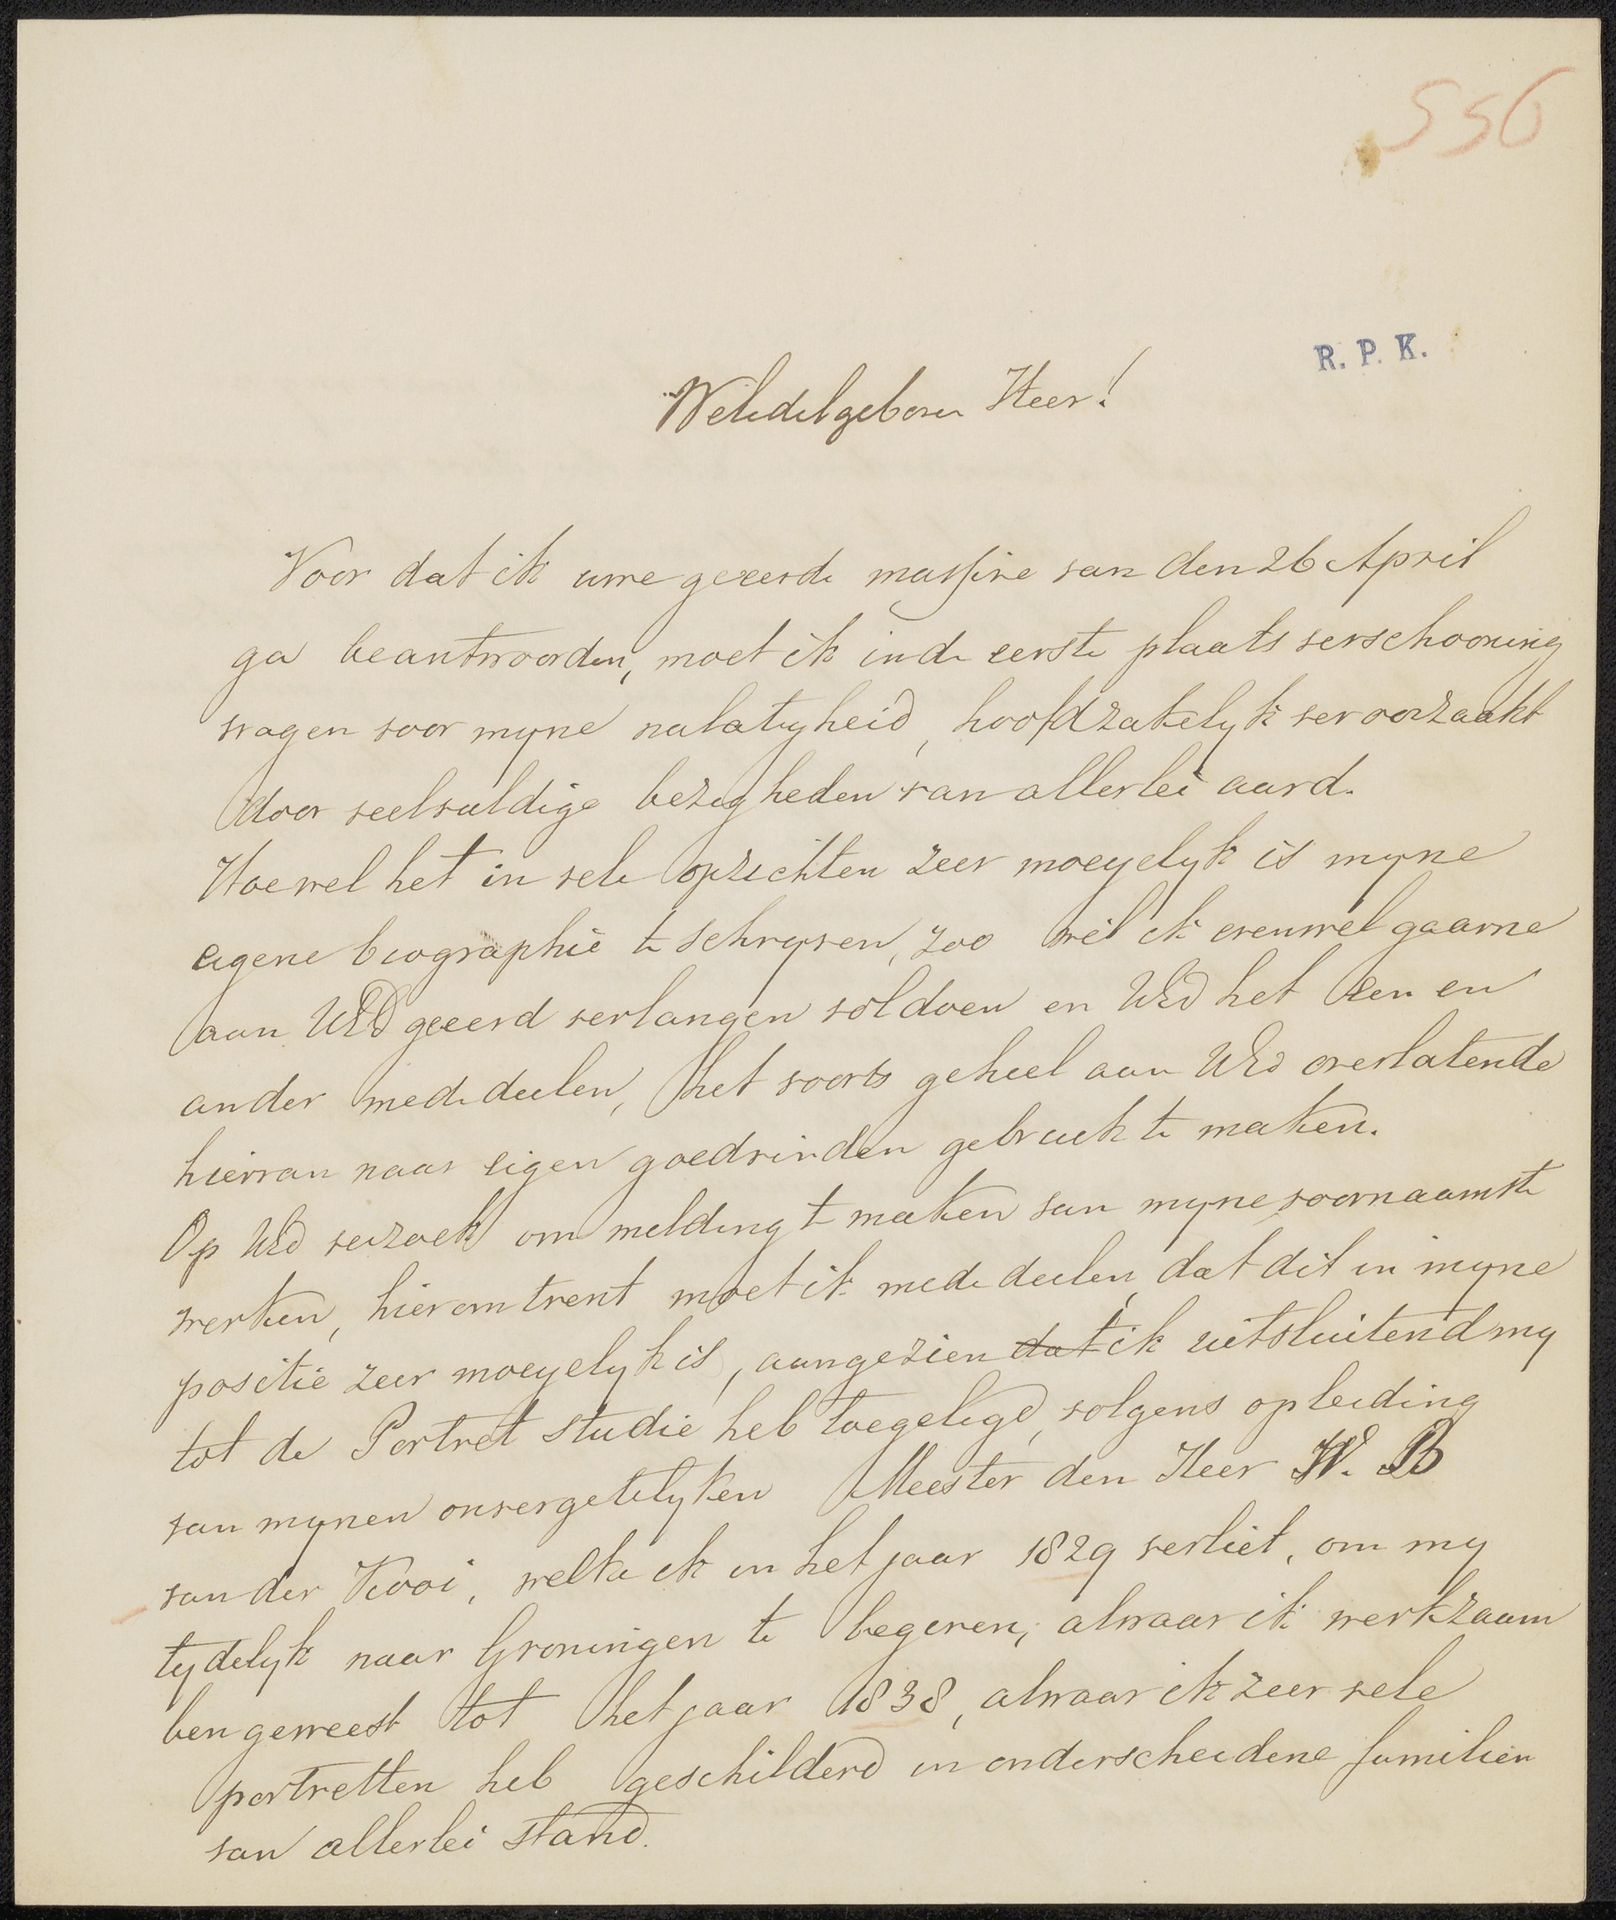 556
R. P. K.
Weledelgeboren Heer!
Voor dat ik uwe geëerde missive van den 26 April
ga beantwoorden, moet ik in de eerste plaats verschooning
vragen voor myne nalatigheid, hoofdzakelyk veroorzaakt
door veelvuldige bezigheden van allerlei aard.
Hoewel het in vele opzichten zeer moeyelyk is myne
eigene biographie te schryven, zoo wil ik evenwel gaarne
aan UEd geeerd verlangen voldoen en UEd het een en
ander mededeelen, het voorts geheel aan UEd overlatende
hiervan naar eigen goedvinden gebruik te maken.
Op UEd verzoek om melding te maken van myne voornaamste
werken, hieromtrent moet ik mededeelen, dat dit in myne
positie zeer moeyelyk is, aangezien dat ik uitsluitend my
tot de Portret studie heb toegelegd, volgens opleiding
van mynen onvergetelyken Meester den Heer W. B
van der Kooi, welke ik in het jaar 1829 verliet, om my
tydelyk naar Groningen te begeven, alwaar ik werkzaam
ben geweest tot het jaar 1838, alwaar ik zeer vele
portretten heb geschilderd in onderscheidene familien
van allerlei stand.